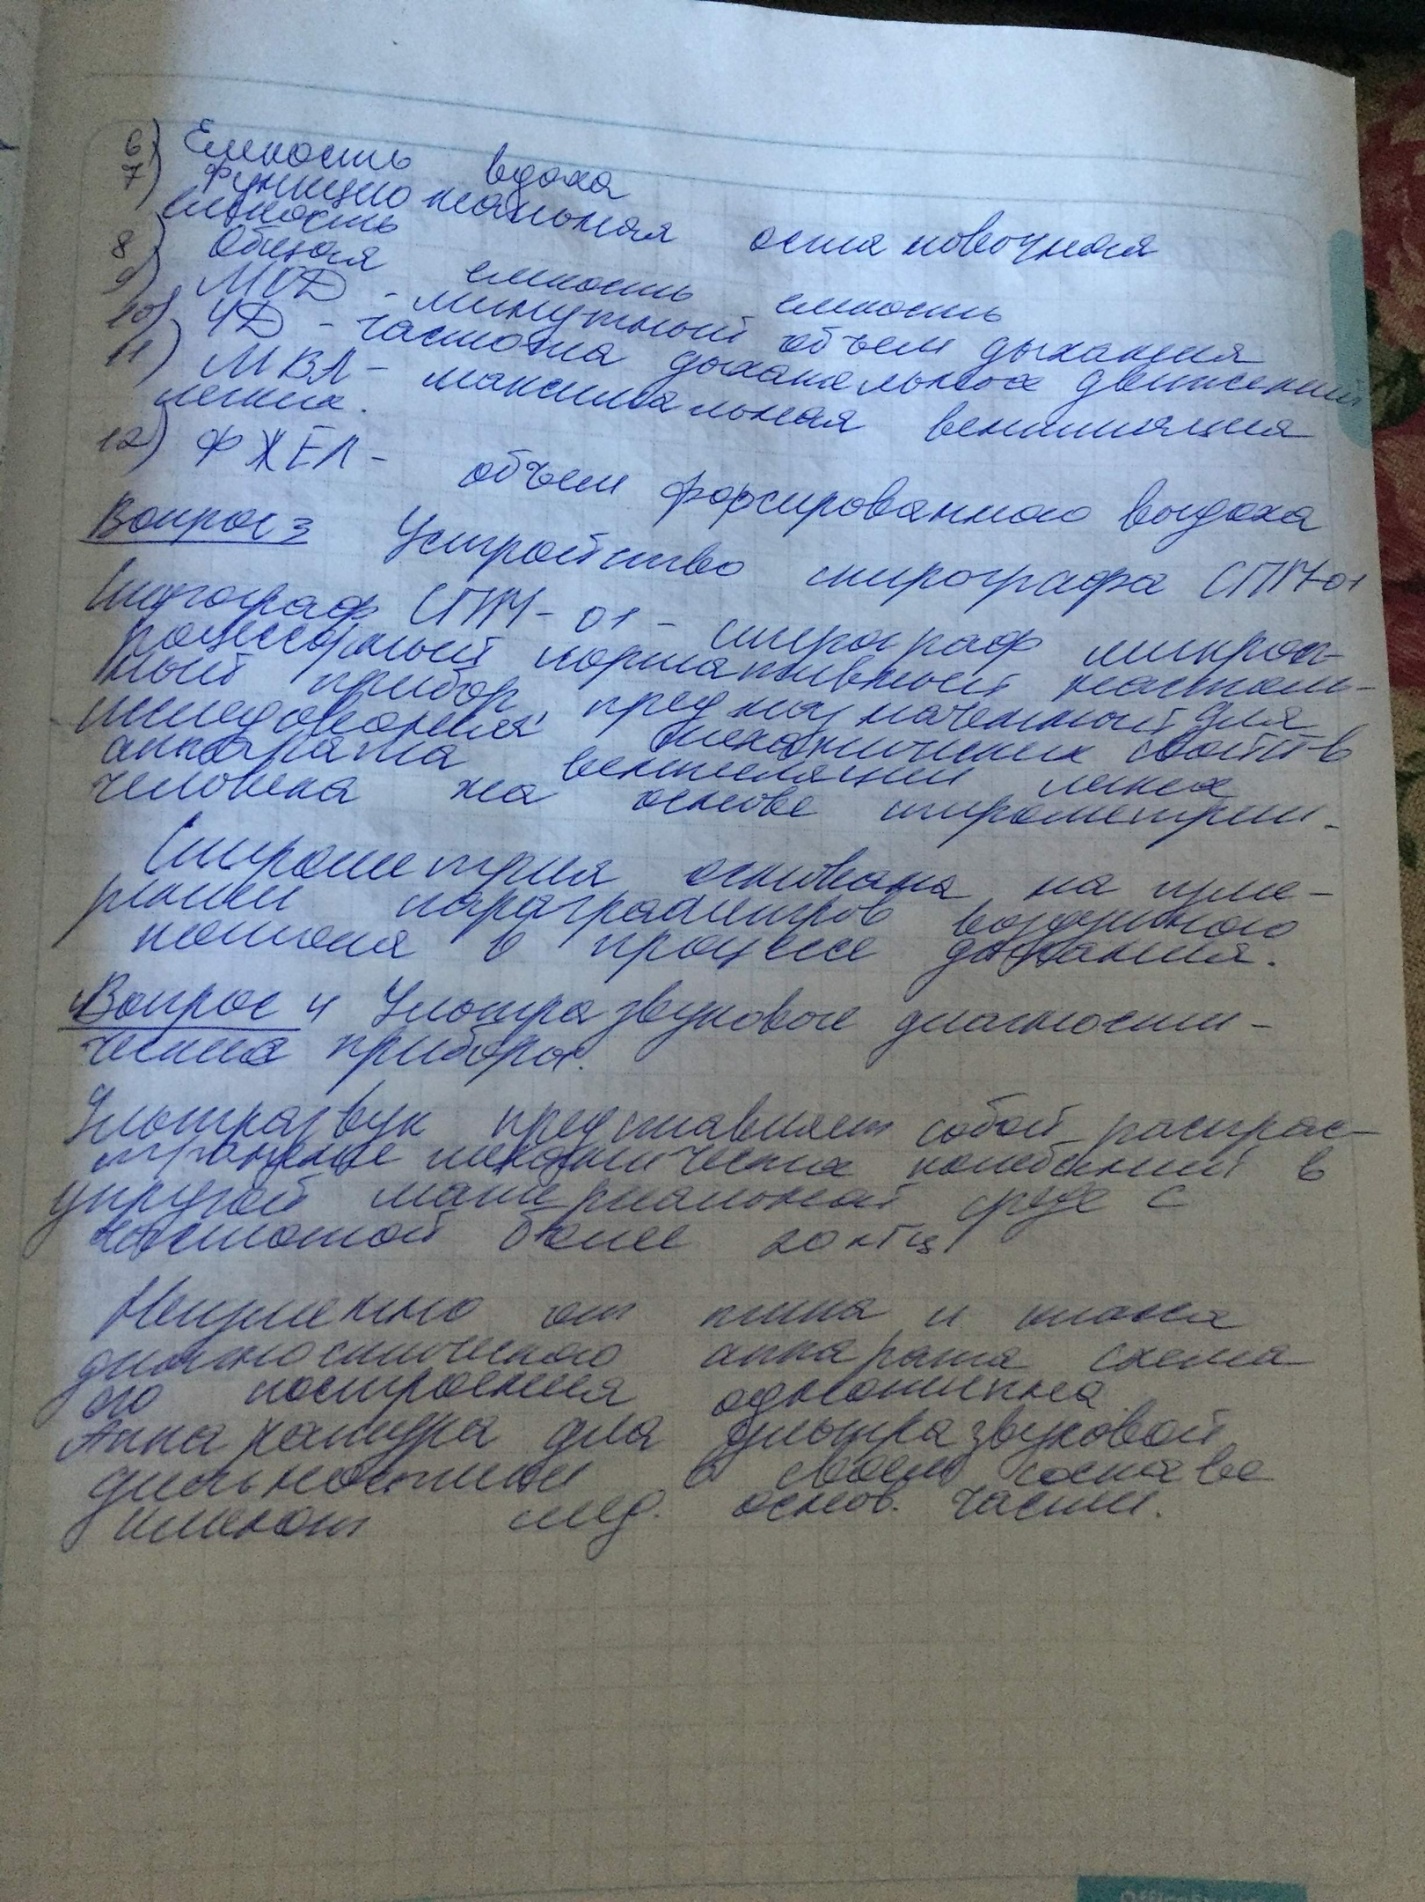 6) Емкость вдоха
7) Функциональная остановочная
емкость
8) Общая емкость емкость
9) МОД - минутный объем дыхания
10) ЧД - частота дыхательных движений
11) МВЛ - максимальная вентиляция
легких.
12) ФЖЕЛ - объем форсированного выдоха
Вопрос 3 Устройство спирографа СПМ-01
Спирограф СПМ-01 - спирограф микроп-
роцессорный портативный настоль-
ный прибор, предназначенный для
исследования механических свойств
аппарата вентиляции легких
человека на основе спирометрии.
Спирометрия основана на изме-
рении параграметров воздушного
потока в процессе дыхания.
Вопрос 4 Ультразвуковые диагности-
ческие приборы.
Ультразвук представляет собой распрос-
транение механических колебаний в
упругой материальной среде с
частотой более 20 кГц
Независимо от типа и класса
диагностического аппарата схема
его построения однотипна
Аппаратура для ультразвуковой
диагностики в своем составе
имеют след. основ. части.